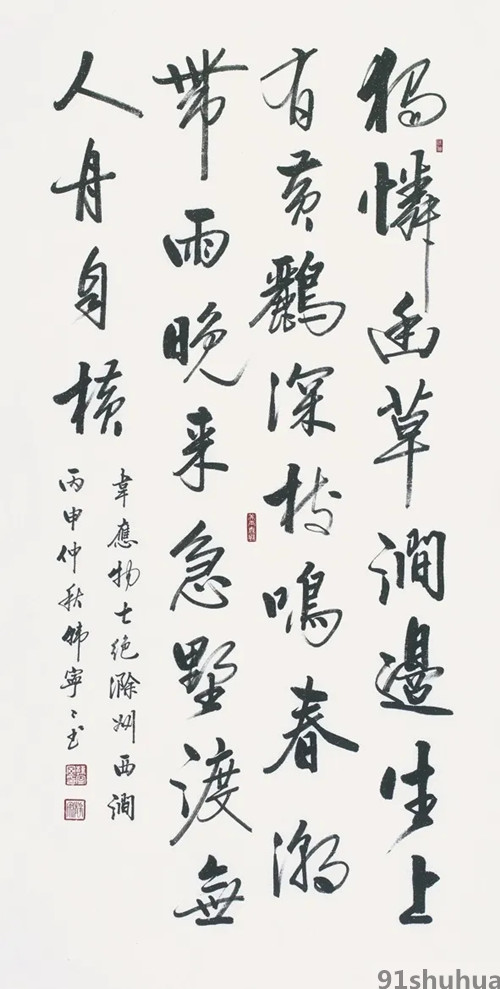 独憐幽草澗邊生上
有黄鸝深樹鳴春潮
帶雨晚来急墅渡無
人舟自橫
韋應物七絕滁州西澗
丙申仲秋韩寧〻书
91shuhua